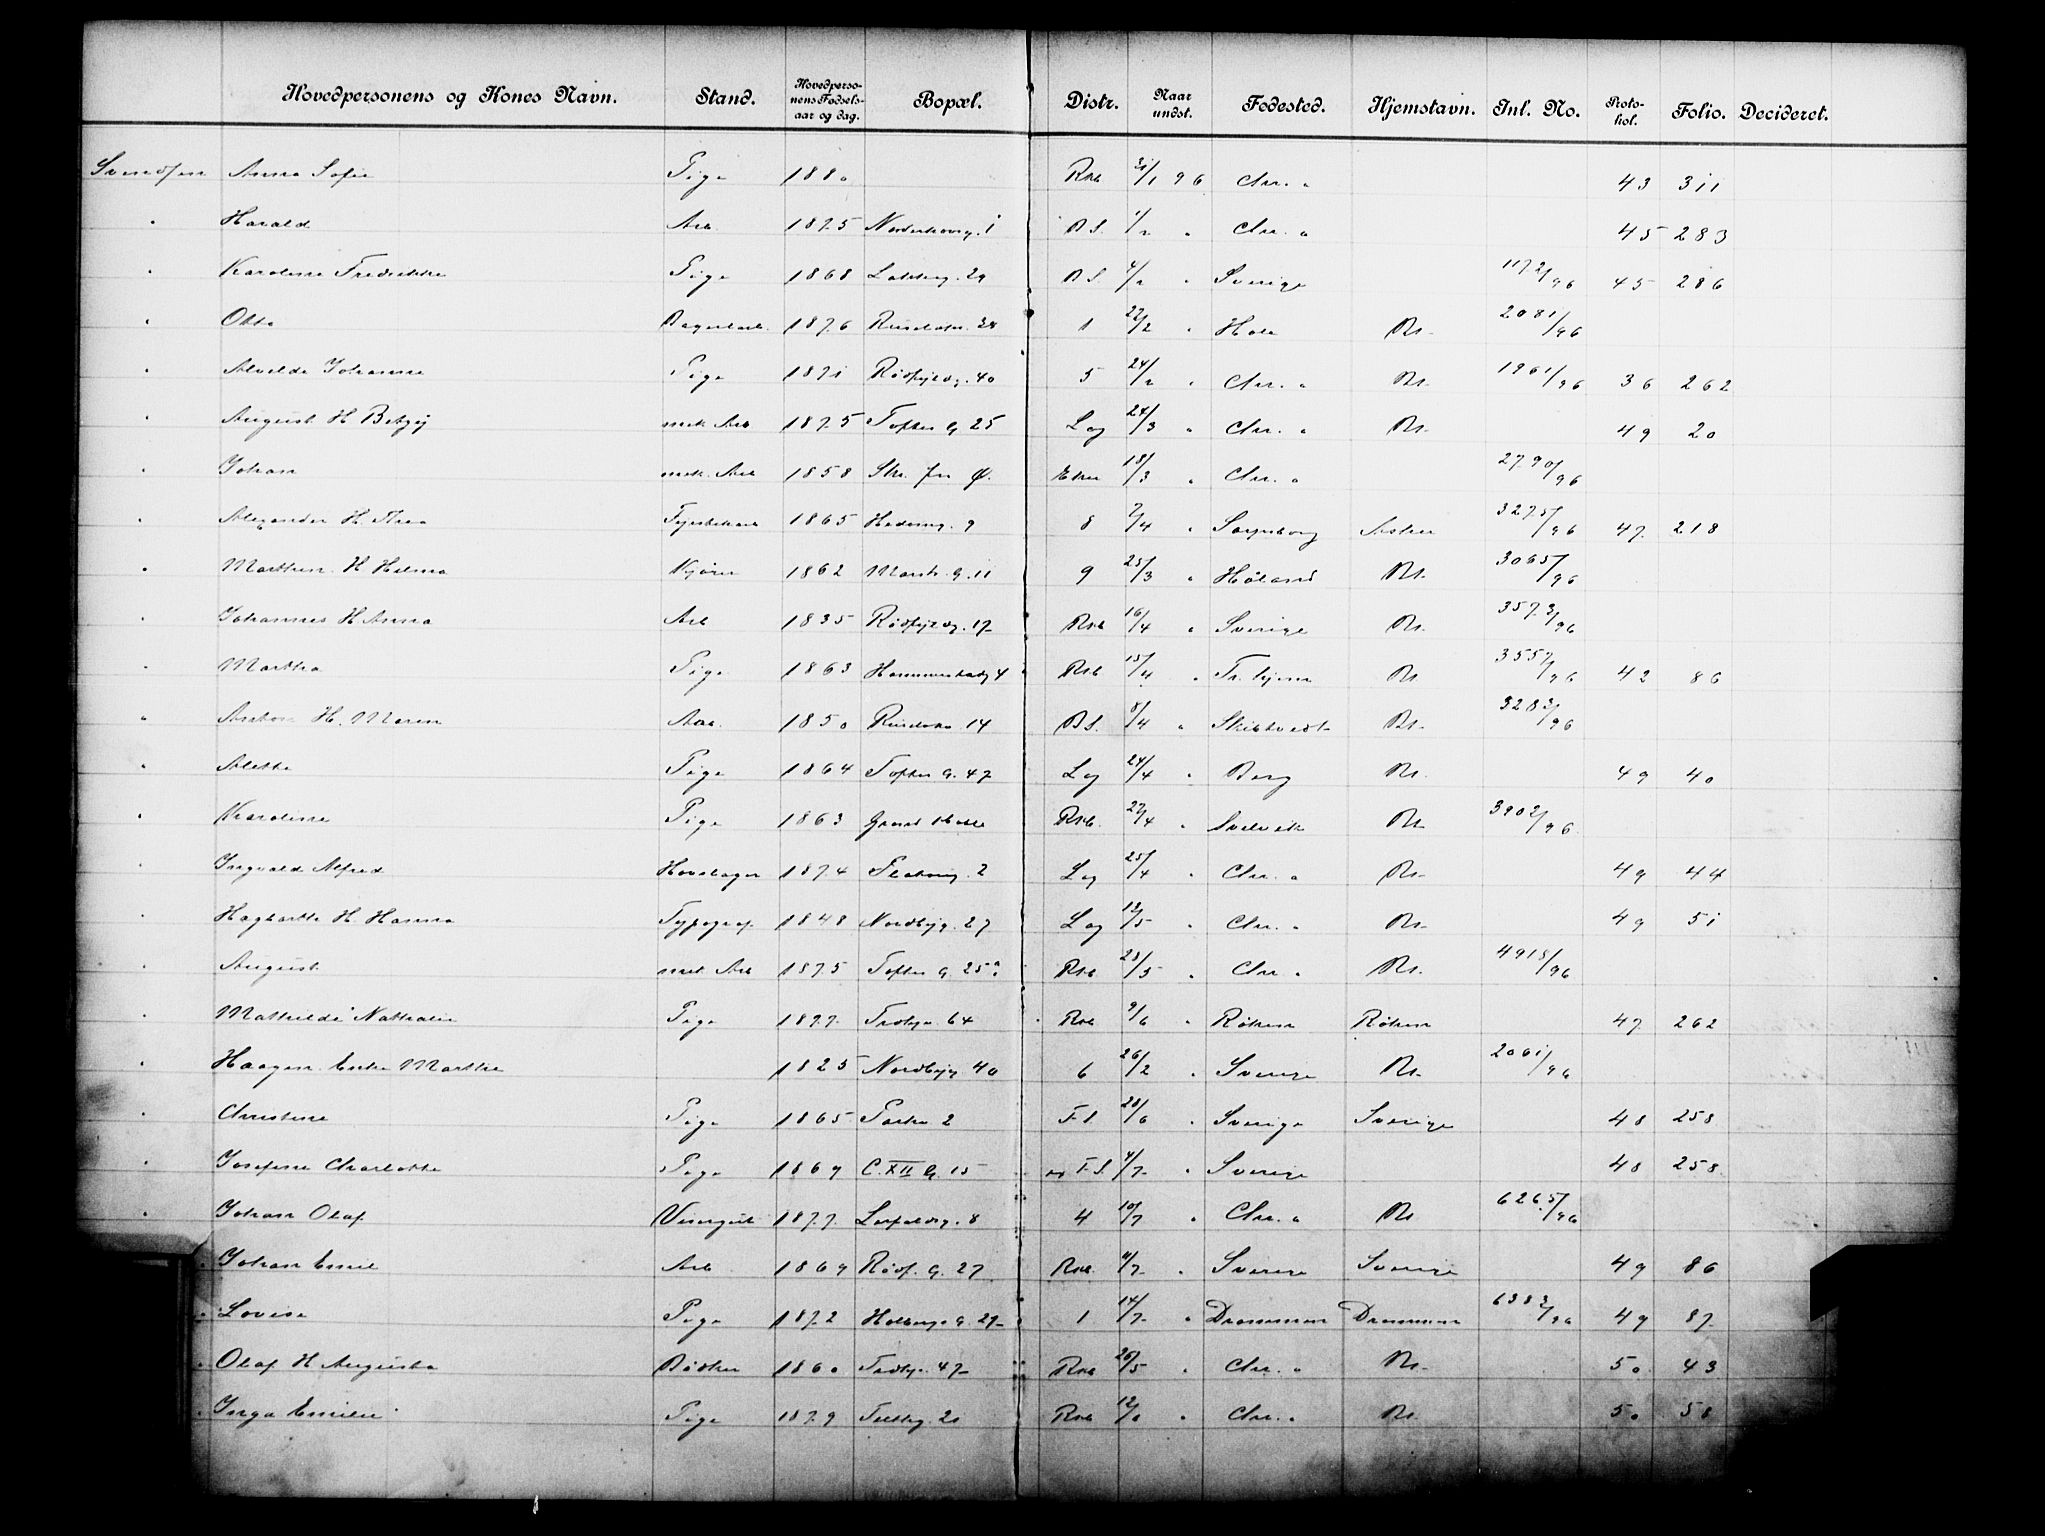 Hovedpersonens og Kones Navn. Stand. Hovedperso-nens Fødsels-aar og dag. Bopæl. Distr. Naar undst. Fødested. Hjemstavn. Inl. No. Proto-kol. Folio. Decideret.
Svendsen Anna Sofie Pige 1880 Rsb 31/1 96 Chr. " 43 311
" Harald Arb. 1875 BS. 1/2 " Chr. " 45 283
" Karoline Fredrikke Pige 1868 Lakkeg. 29 BS. 4/2 " Sverige 1172/96 45 286
" Otto 1876 Ruselökv. 38 1 22/2 " Hole Bs. 2081/96
" Alvilde Johanne Pige 1871 Rödfyldg. 40 5 24/2 " Chr. " Bs. 1961/96 36 262
" August H Betzy mek Arb 1875 Toftes G 25 Log 24/3 " Chr. " Bs. 49 20
" Johan mek. Arb 1858 Str. for Ø. Eker 18/3 " Chr. " 2790/96
" Alexander H. Thea 1865 Hedemg. 9 8 7/4 " Sarpsborg Asker 3275/96 47 218
" Marthin H Hilma Kjører 1862 Markv. G. 11 9 25/3 " Høland Bs. 3065/96
" Johannes H Anna Arb 1835 Rödfyldg. 17 Rsb 16/4 " Sverige Bs. 3573/96
" Martha Pige 1863 Hammersborg 4 Rsb 15/4 " Tr.hjem Bs 3557/96 42 86
" Anton H. Maren Arb. 1850 Ruselökv. 14 BS. 8/4 " Skibtvedt Bs. 3283/96
" Alette Pige 1864 Toftes G. 47 Log 24/4 " Berg Bs. 49 40
" Karoline Pige 1863 Grand Hotel Rsb. 27/4 " Svelvik Bs 3902/96
" Ingvald Alfred Hovslager 1874 2 Log 25/4 " Chr. " Bs. 49 44
" Hagbarth H. Hanna Typograf. 1848 Nordbyg. 27 Log 12/5 " Chr. " Bs. 49 51
" August mek Arb 1875 Toftes G. 25a Rsb 23/5 " Chr. " Bs. 4918/96
" Mathilde Nathalie Pige 1877 Trondhj. 64 Rsb 9/6 " Röken Röken 47 262
" Haagen Enke Marthe 1825 Nordbyg 40 6 26/2 " Sverige Bs. 2061/96
" Christine Pige 1865 Parkv 2 FS. 28/6 " Sverige Sverige 48 258
" Josefine Charlotte Pige 1869 C. XII G. 15 FS. 4/7 " Sverige 48 258
" Johan Olaf Visergut 1877 8 4 10/7 " Chr. " Bs 6265/96
" Johan Emil Arb 1869 Rödf. G. 27 Rsb. 11/7 " Sverige Sverige 49 86
" Lovise Pige 1872 Holbergs G. 27 1 14/7 " Drammen Drammen 6383/96 49 87
" Olaf H Augusta Bödker 1860 Trondhjv. 47 Rsb 26/5 " Chr. " Bs. 50 43
" Inga Emilie Pige 1879 Rsb 12/8 " Chr. " Bs. 50 58